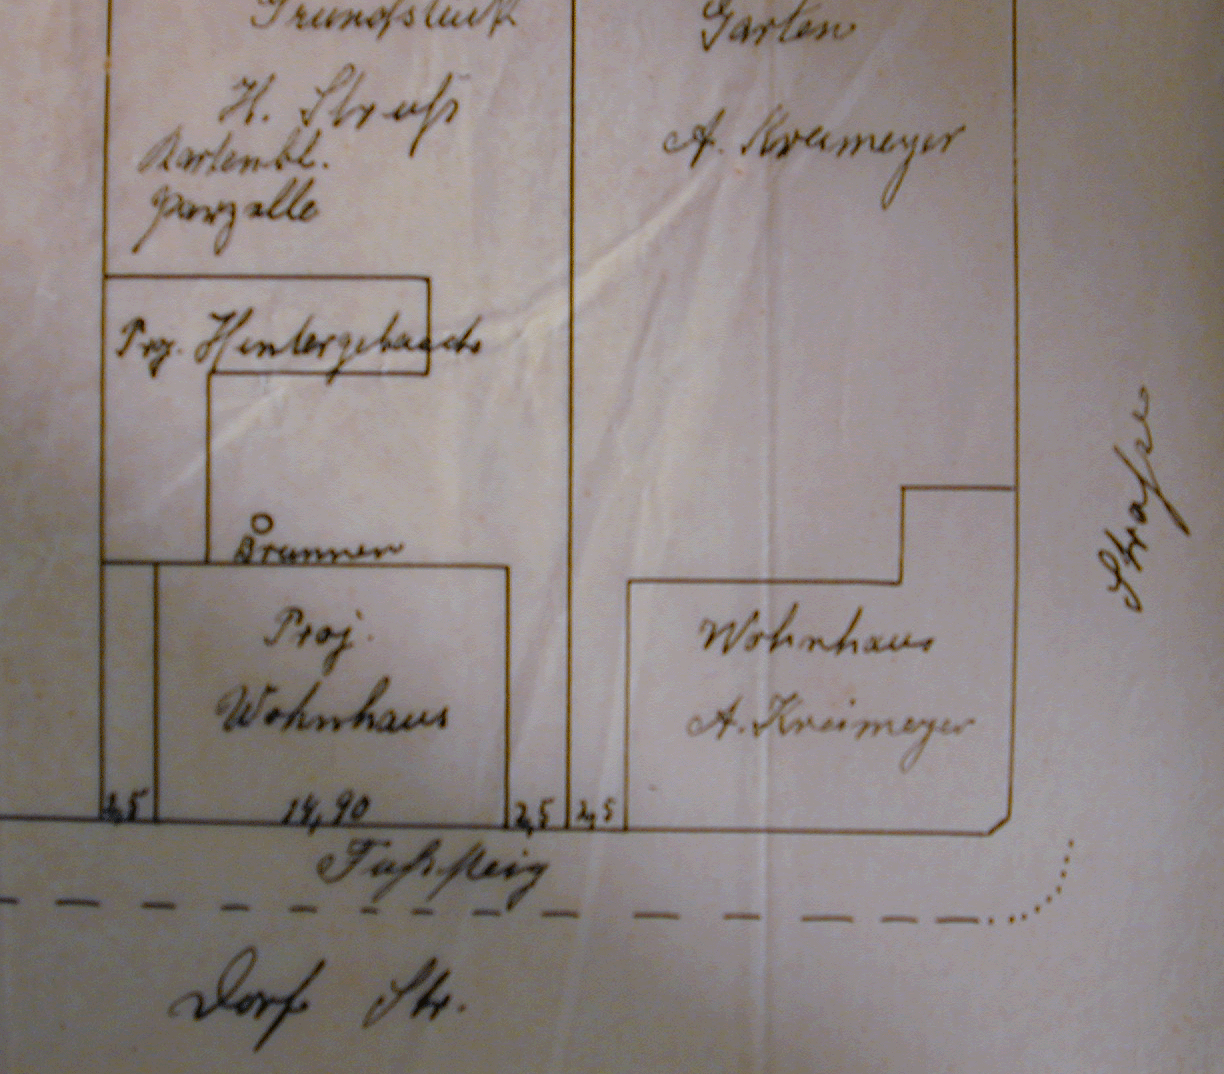 Grundstück
Garten
H. Struß
A. Kreimeyer
Kartenbl.
Parzelle
Proj. Hintergebäude
Straße
Brunnen
Proj.
Wohnhaus
Wohnhaus
A. Kreimeyer
2,5
14,90
2,5
2,5
Fußsteig
Dorf Str.